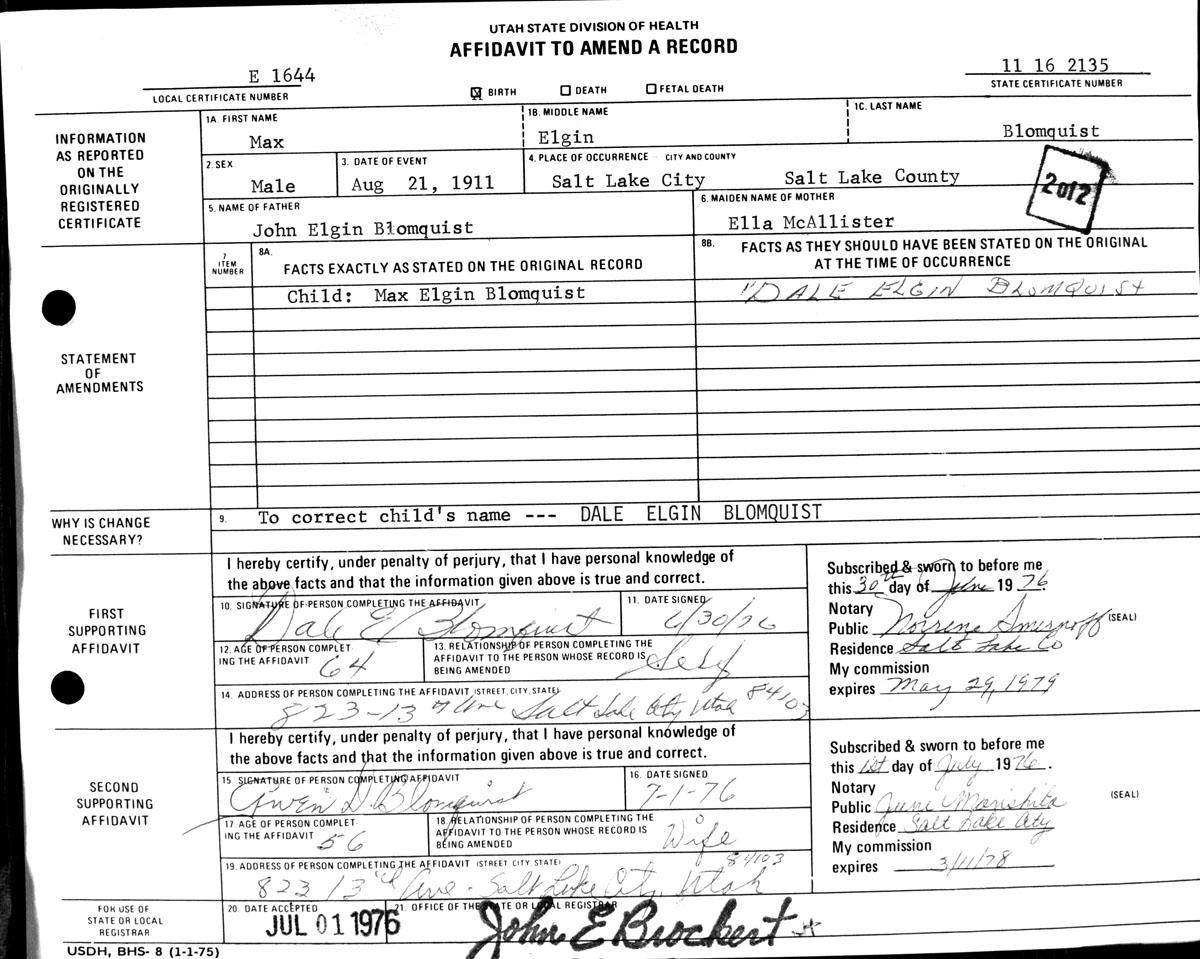 UTAH STATE DIVISION OF HEALTH
AFFIDAVIT TO AMEND A RECORD
E 1644
LOCAL CERTIFICATE NUMBER
X BIRTH DEATH FETAL DEATH
11 16 2135
STATE CERTIFICATE NUMBER
INFORMATION
AS REPORTED
ON THE
ORIGINALLY
REGISTERED
CERTIFICATE
1A. FIRST NAME
Max
1B. MIDDLE NAME
Elgin
1C. LAST NAME
Blomquist
2. SEX
Male
3. DATE OF EVENT
Aug 21, 1911
4. PLACE OF OCCURRENCE - CITY AND COUNTY
Salt Lake City Salt Lake County
2 of 2
5. NAME OF FATHER
John Elgin Blomquist
6. MAIDEN NAME OF MOTHER
Ella McAllister
STATEMENT
OF
AMENDMENTS
7
ITEM
NUMBER
8A.
FACTS EXACTLY AS STATED ON THE ORIGINAL RECORD
8B. FACTS AS THEY SHOULD HAVE BEEN STATED ON THE ORIGINAL
AT THE TIME OF OCCURRENCE
Child: Max Elgin Blomquist
"DALE ELGIN BLOMQUIST
WHY IS CHANGE
NECESSARY?
9. To correct child's name --- DALE ELGIN BLOMQUIST
FIRST
SUPPORTING
AFFIDAVIT
I hereby certify, under penalty of perjury, that I have personal knowledge of
the above facts and that the information given above is true and correct.
10. SIGNATURE OF PERSON COMPLETING THE AFFIDAVIT
Dale E Blomquist
11. DATE SIGNED
6/30/76
12. AGE OF PERSON COMPLET-
ING THE AFFIDAVIT 64
13. RELATIONSHIP OF PERSON COMPLETING THE
AFFIDAVIT TO THE PERSON WHOSE RECORD IS
BEING AMENDED
Self
14. ADDRESS OF PERSON COMPLETING THE AFFIDAVIT (STREET, CITY, STATE)
823-13th Ave Salt Lake City, Utah 84103
Subscribed & sworn to before me
this 30th day of June 1976.
Notary
Public Norrene Smirnoff (SEAL)
Residence Salt Lake Co
My commission
expires May 29, 1979
SECOND
SUPPORTING
AFFIDAVIT
I hereby certify, under penalty of perjury, that I have personal knowledge of
the above facts and that the information given above is true and correct.
15. SIGNATURE OF PERSON COMPLETING AFFIDAVIT
Gwen D. Blomquist
16. DATE SIGNED
7-1-76
17. AGE OF PERSON COMPLET-
ING THE AFFIDAVIT 56
18. RELATIONSHIP OF PERSON COMPLETING THE
AFFIDAVIT TO THE PERSON WHOSE RECORD IS
BEING AMENDED
Wife
19. ADDRESS OF PERSON COMPLETING THE AFFIDAVIT (STREET, CITY STATE)
823 13th Ave - Salt Lake City, Utah 84103
Subscribed & sworn to before me
this 1st day of July 1976.
Notary
Public June Morishita (SEAL)
Residence Salt Lake City
My commission
expires 3/11/78
FOR USE OF
STATE OR LOCAL
REGISTRAR
20. DATE ACCEPTED
JUL 01 1976
21. OFFICE OF THE STATE OR LOCAL REGISTRAR
John E Brockert
USDH, BHS- 8 (1-1-75)